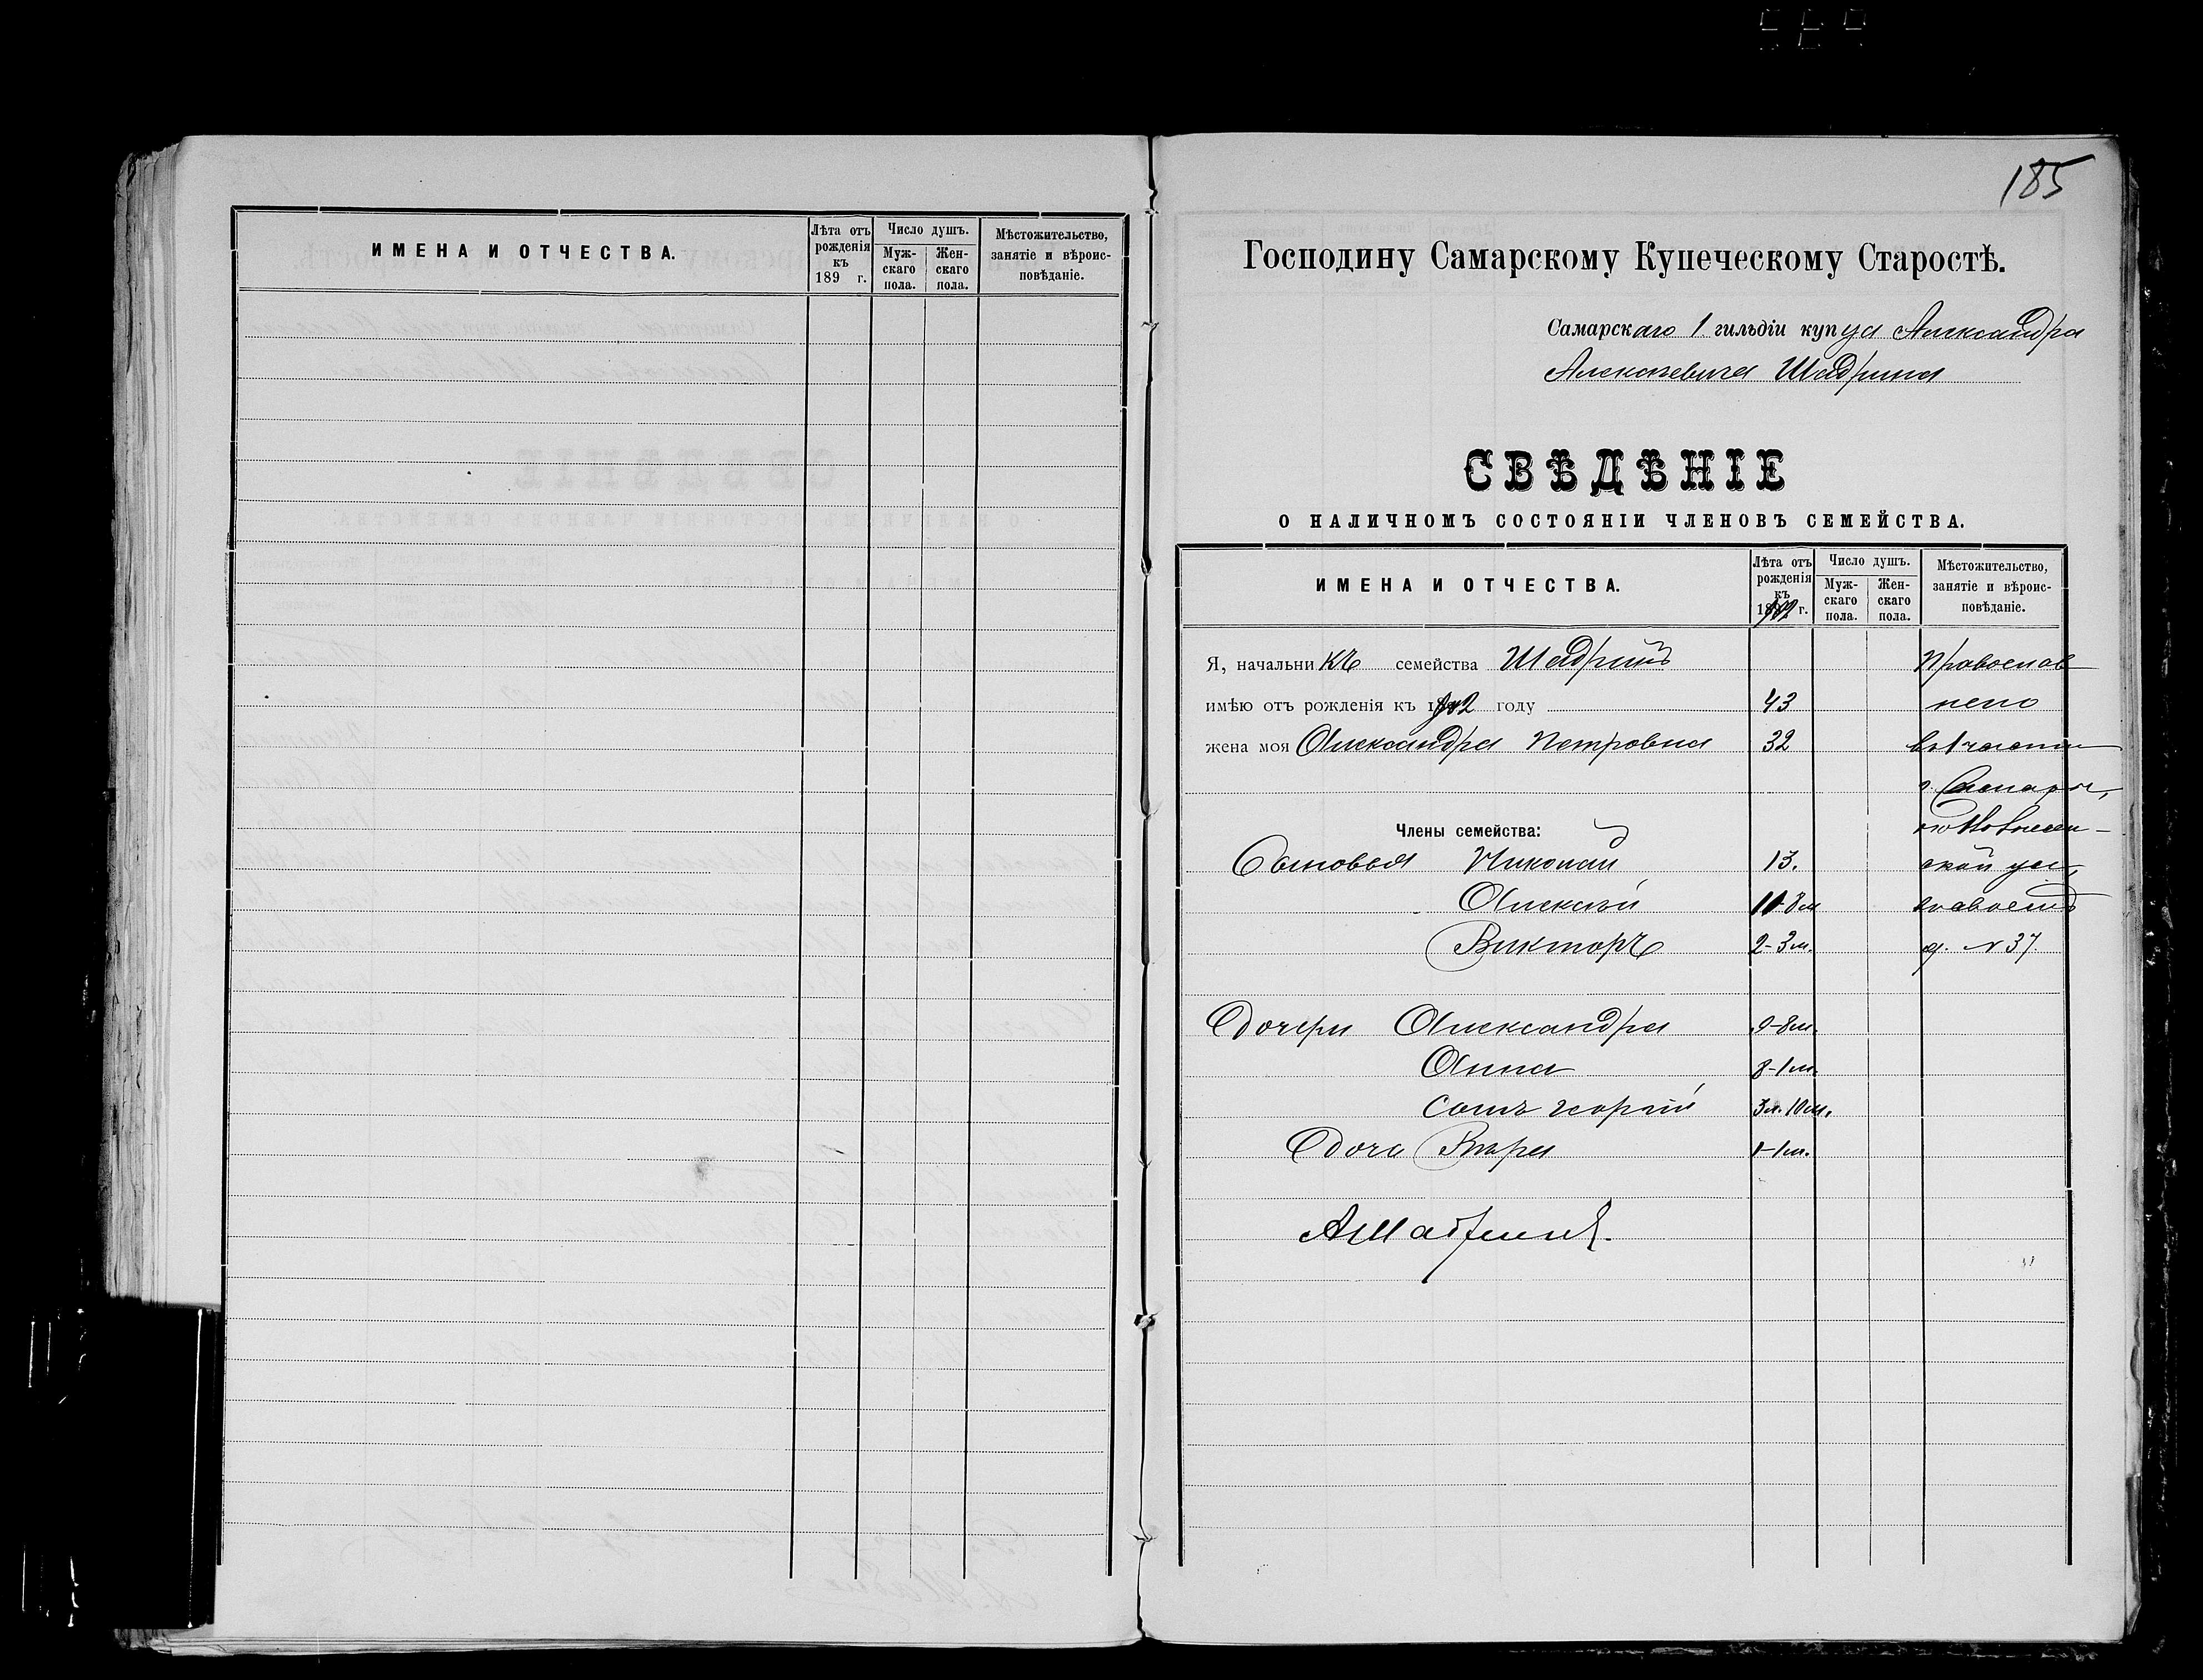 ИМЕНА И ОТЧЕСТВА.
Лѣта отъ рожденія къ 189 г.
Число душъ.
Муж-скаго пола.
Жен-скаго пола.
Мѣстожительство, занятіе и вѣроис-повѣданіе.
185
Господину Самарскому Купеческому Старостѣ.
Самарскаго 1 гильдіи купца Александра
Алексѣевича Шадрина
СВѢДѢНІЕ
О НАЛИЧНОМЪ СОСТОЯНІИ ЧЛЕНОВЪ СЕМЕЙСТВА.
ИМЕНА И ОТЧЕСТВА.
Лѣта отъ рожденія къ 1902 г.
Число душъ.
Муж-скаго пола.
Жен-скаго пола.
Мѣстожительство, занятіе и вѣроис-повѣданіе.
Я, начальникъ семейства Шадринъ Православ
имѣю отъ рожденія къ 1902 году 43
жена моя Александра Петровна 32 въ 1 части
г. Самары,
Члены семейства:
Сыновья Николай 13. ской ул.
Алексѣй 11-8м
Викторъ 2-3м. д. № 37.
Дочери Александра 9-8м.
Анна 8-1м.
сынъ георгій 3л. 10м.
Дочь Вѣра 1-1м.
АШадринъ.